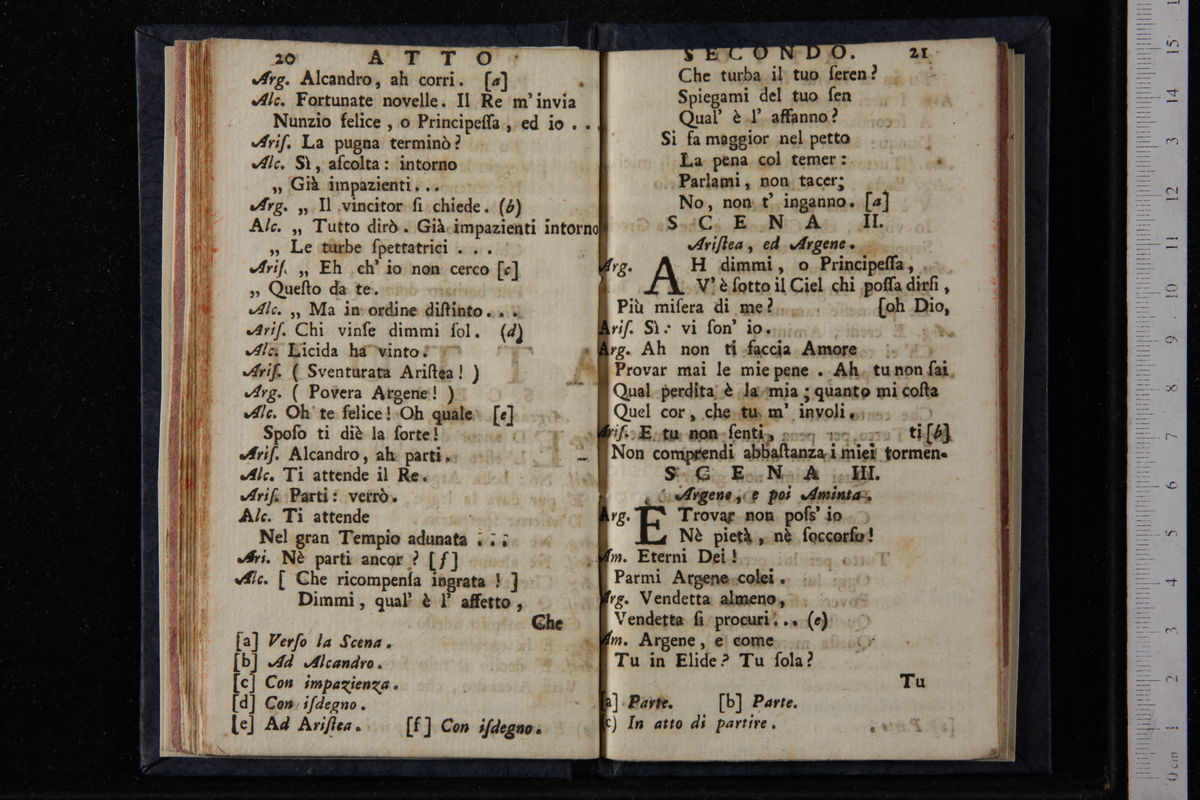 20 ATTO
Arg. Alcandro, ah corri. [a]
Alc. Fortunate novelle. Il Re m'invia
Nunzio felice, o Principeſſa, ed io . .
Ariſ. La pugna terminò?
Alc. Sì, aſcolta: intorno
„ Già impazienti...
Arg. „ Il vincitor ſi chiede. (b)
Alc. „ Tutto dirò. Già impazienti intorno
„ Le turbe ſpettatrici . . .
Ariſ. „ Eh ch' io non cerco [c]
„ Queſto da te.
Alc. „ Ma in ordine diſtinto...
Ariſ. Chi vinſe dimmi ſol. (d)
Alc. Licida ha vinto.
Ariſ. ( Sventurata Ariſtea! )
Arg. ( Povera Argene! )
Alc. Oh te felice! Oh quale [e]
Spoſo ti diè la ſorte!
Ariſ. Alcandro, ah parti.
Alc. Ti attende il Re.
Ariſ. Parti: verrò.
Alc. Ti attende
Nel gran Tempio adunata . . .
Ari. Nè parti ancor? [f]
Alc. [ Che ricompenſa ingrata! ]
Dimmi, qual' è l' affetto,
Che
[a] Verſo la Scena.
[b] Ad Alcandro.
[c] Con impazienza.
[d] Con iſdegno.
[e] Ad Ariſtea. [f] Con iſdegno.
SECONDO. 21
Che turba il tuo ſeren?
Spiegami del tuo ſen
Qual' è l' affanno?
Si fa maggior nel petto
La pena col temer:
Parlami, non tacer;
No, non t' inganno. [a]
SCENA II.
Ariſtea, ed Argene.
Arg. AH dimmi, o Principeſſa,
V' è ſotto il Ciel chi poſſa dirſi,
Più miſera di me? [oh Dio,
Ariſ. Sì: vi ſon' io.
Arg. Ah non ti faccia Amore
Provar mai le mie pene. Ah tu non ſai
Qual perdita è la mia; quanto mi coſta
Quel cor, che tu m' involi.
Ariſ. E tu non ſenti, ti [b]
Non comprendi abbaſtanza i miei tormen-
SCENA III.
Argene, e poi Aminta.
Arg. E Trovar non poſs' io
Nè pietà, nè ſoccorſo!
Am. Eterni Dei!
Parmi Argene colei.
Arg. Vendetta almeno,
Vendetta ſi procuri... (e)
Am. Argene, e come
Tu in Elide? Tu ſola?
Tu
[a] Parte. [b] Parte.
(c) In atto di partire.